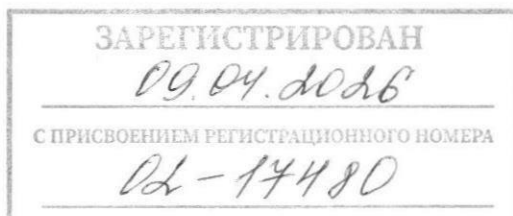 ЗАРЕГИСТРИРОВАН
09.04.2026
С ПРИСВОЕНИЕМ РЕГИСТРАЦИОННОГО НОМЕРА
02-17480